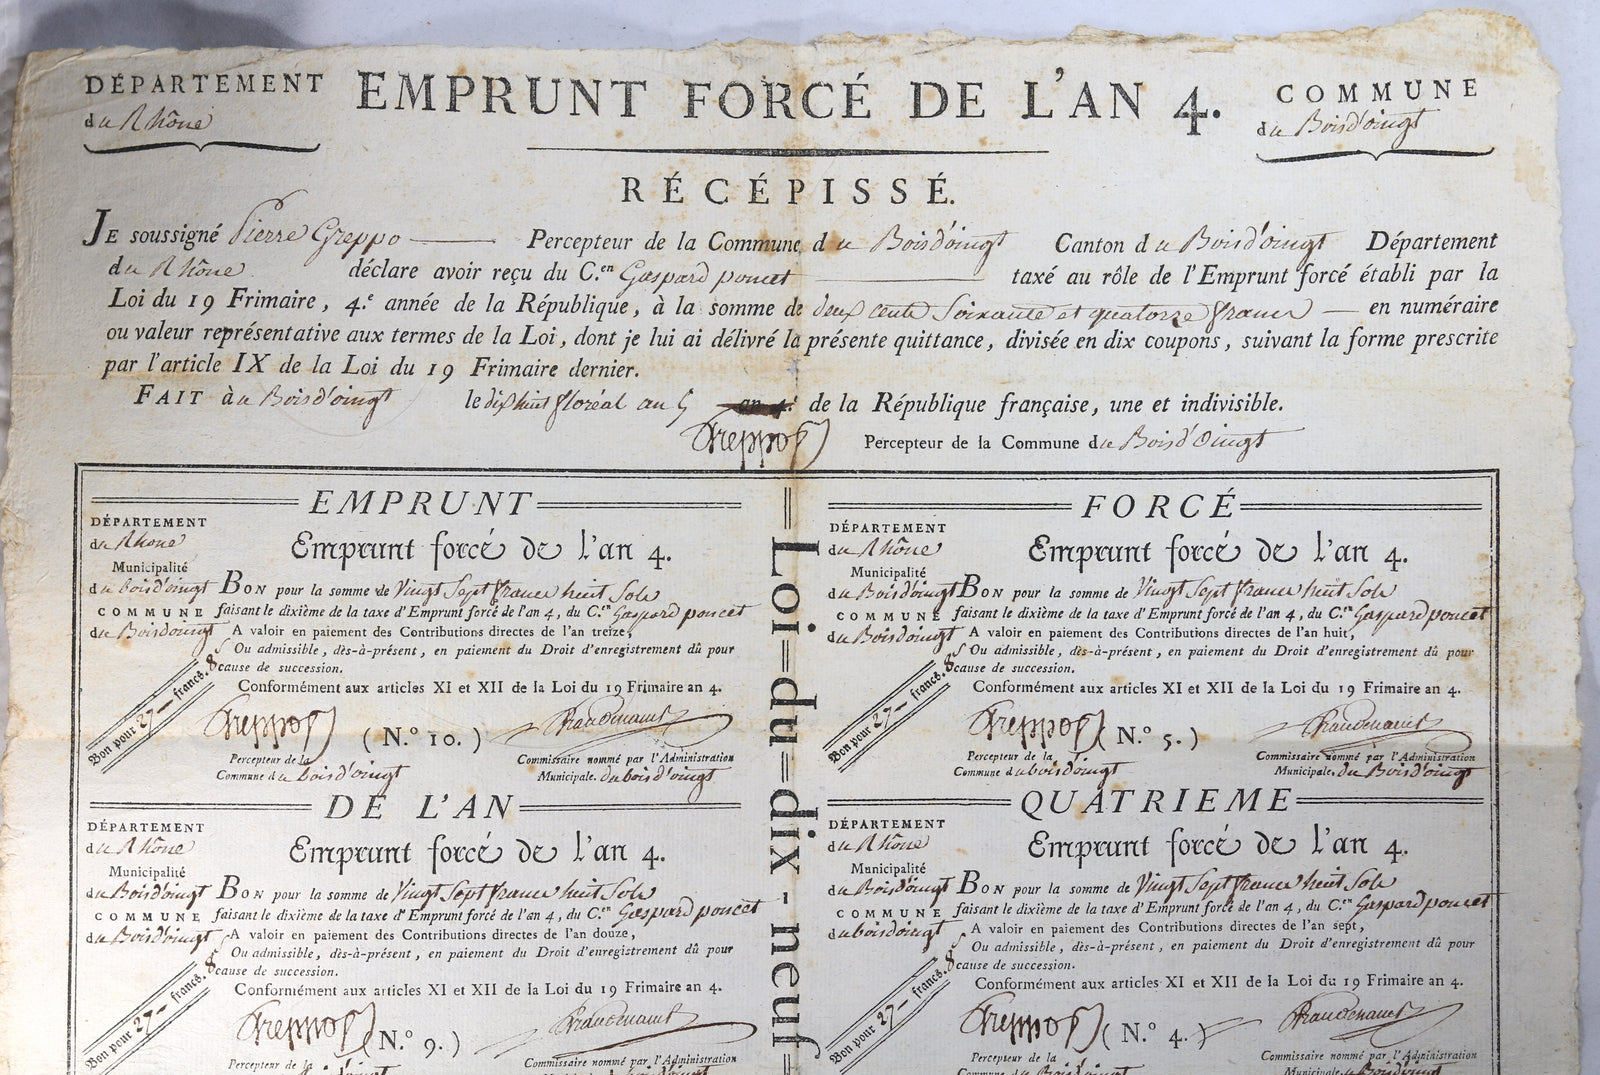 DÉPARTEMENT
du Rhône
EMPRUNT FORCÉ DE L'AN 4.
COMMUNE
du Boisd'oingt
RÉCÉPISSÉ.
JE soussigné Pierre Greppo Percepteur de la Commune du Boisd'oingt Canton du Boisd'oingt Département
du Rhône déclare avoir reçu du C.en Gaspard poncet taxé au rôle de l'Emprunt forcé établi par la
Loi du 19 Frimaire, 4.e année de la République, à la somme de deux cents Soixante et quatorze francs en numéraire
ou valeur représentative aux termes de la Loi, dont je lui ai délivré la présente quittance, divisée en dix coupons, suivant la forme prescrite
par l'article IX de la Loi du 19 Frimaire dernier.
FAIT à au Boisd'oingt le dix huit floréal an 5 an 4.e de la République française, une et indivisible.
Greppo Percepteur de la Commune du Bois d'Oingt
EMPRUNT
DÉPARTEMENT
du Rhone
Emprunt forcé de l'an 4.
Municipalité
du bois d'oingt BON pour la somme de Vingt Sept francs huit Sols
COMMUNE faisant le dixième de la taxe d'Emprunt forcé de l'an 4, du C.en Gaspard poncet
du Boisdoingt A valoir en paiement des Contributions directes de l'an treize,
Ou admissible, dès-à-présent, en paiement du Droit d'enregistrement dû pour
cause de succession.
Conformément aux articles XI et XII de la Loi du 19 Frimaire an 4.
Bon pour 27 francs. 8 s
Greppo (N.o 10.)
Percepteur de la
Commune du bois d'oingt
Commissaire nommé par l'Administration
Municipale. du bois d'oingt
FORCÉ
DÉPARTEMENT
du Rhône
Emprunt forcé de l'an 4.
Municipalité
du Boisd'oingt BON pour la somme de Vingt Sept francs huit Sols
COMMUNE faisant le dixième de la taxe d'Emprunt forcé de l'an 4, du C.en Gaspard poncet
du Boisd'oingt A valoir en paiement des Contributions directes de l'an huit,
Ou admissible, dès-à-présent, en paiement du Droit d'enregistrement dû pour
cause de succession.
Conformément aux articles XI et XII de la Loi du 19 Frimaire an 4.
Bon pour 27 francs. 8 s
Greppo (N.o 5.)
Percepteur de la
Commune du bois d'oingt
Commissaire nommé par l'Administration
Municipale. du Bois d'oingt
Loi=du=dix-neuf
DE L'AN
DÉPARTEMENT
du Rhône
Emprunt forcé de l'an 4.
Municipalité
du Boisd'oingt BON pour la somme de Vingt Sept francs huit Sols
COMMUNE faisant le dixième de la taxe d'Emprunt forcé de l'an 4, du C.en Gaspard poncet
du Boisd'oingt A valoir en paiement des Contributions directes de l'an douze,
Ou admissible, dès-à-présent, en paiement du Droit d'enregistrement dû pour
cause de succession.
Conformément aux articles XI et XII de la Loi du 19 Frimaire an 4.
Bon pour 27 francs. 8 s
Greppo (N.o 9.)
Percepteur de la
Commissaire nommé par l'Administration
QUATRIEME
DÉPARTEMENT
du Rhône
Emprunt forcé de l'an 4.
Municipalité
du Boisd'oingt BON pour la somme de Vingt Sept francs huit Sols
COMMUNE faisant le dixième de la taxe d'Emprunt forcé de l'an 4, du C.en Gaspard poncet
du boisd'oingt A valoir en paiement des Contributions directes de l'an sept,
Ou admissible, dès-à-présent, en paiement du Droit d'enregistrement dû pour
cause de succession.
Conformément aux articles XI et XII de la Loi du 19 Frimaire an 4.
Bon pour 27 francs. 8 s
Greppo (N.o 4.)
Percepteur de la
Commune du Bois d'oingt
Commissaire nommé par l'Administration
Municipale. du Bois d'oingt